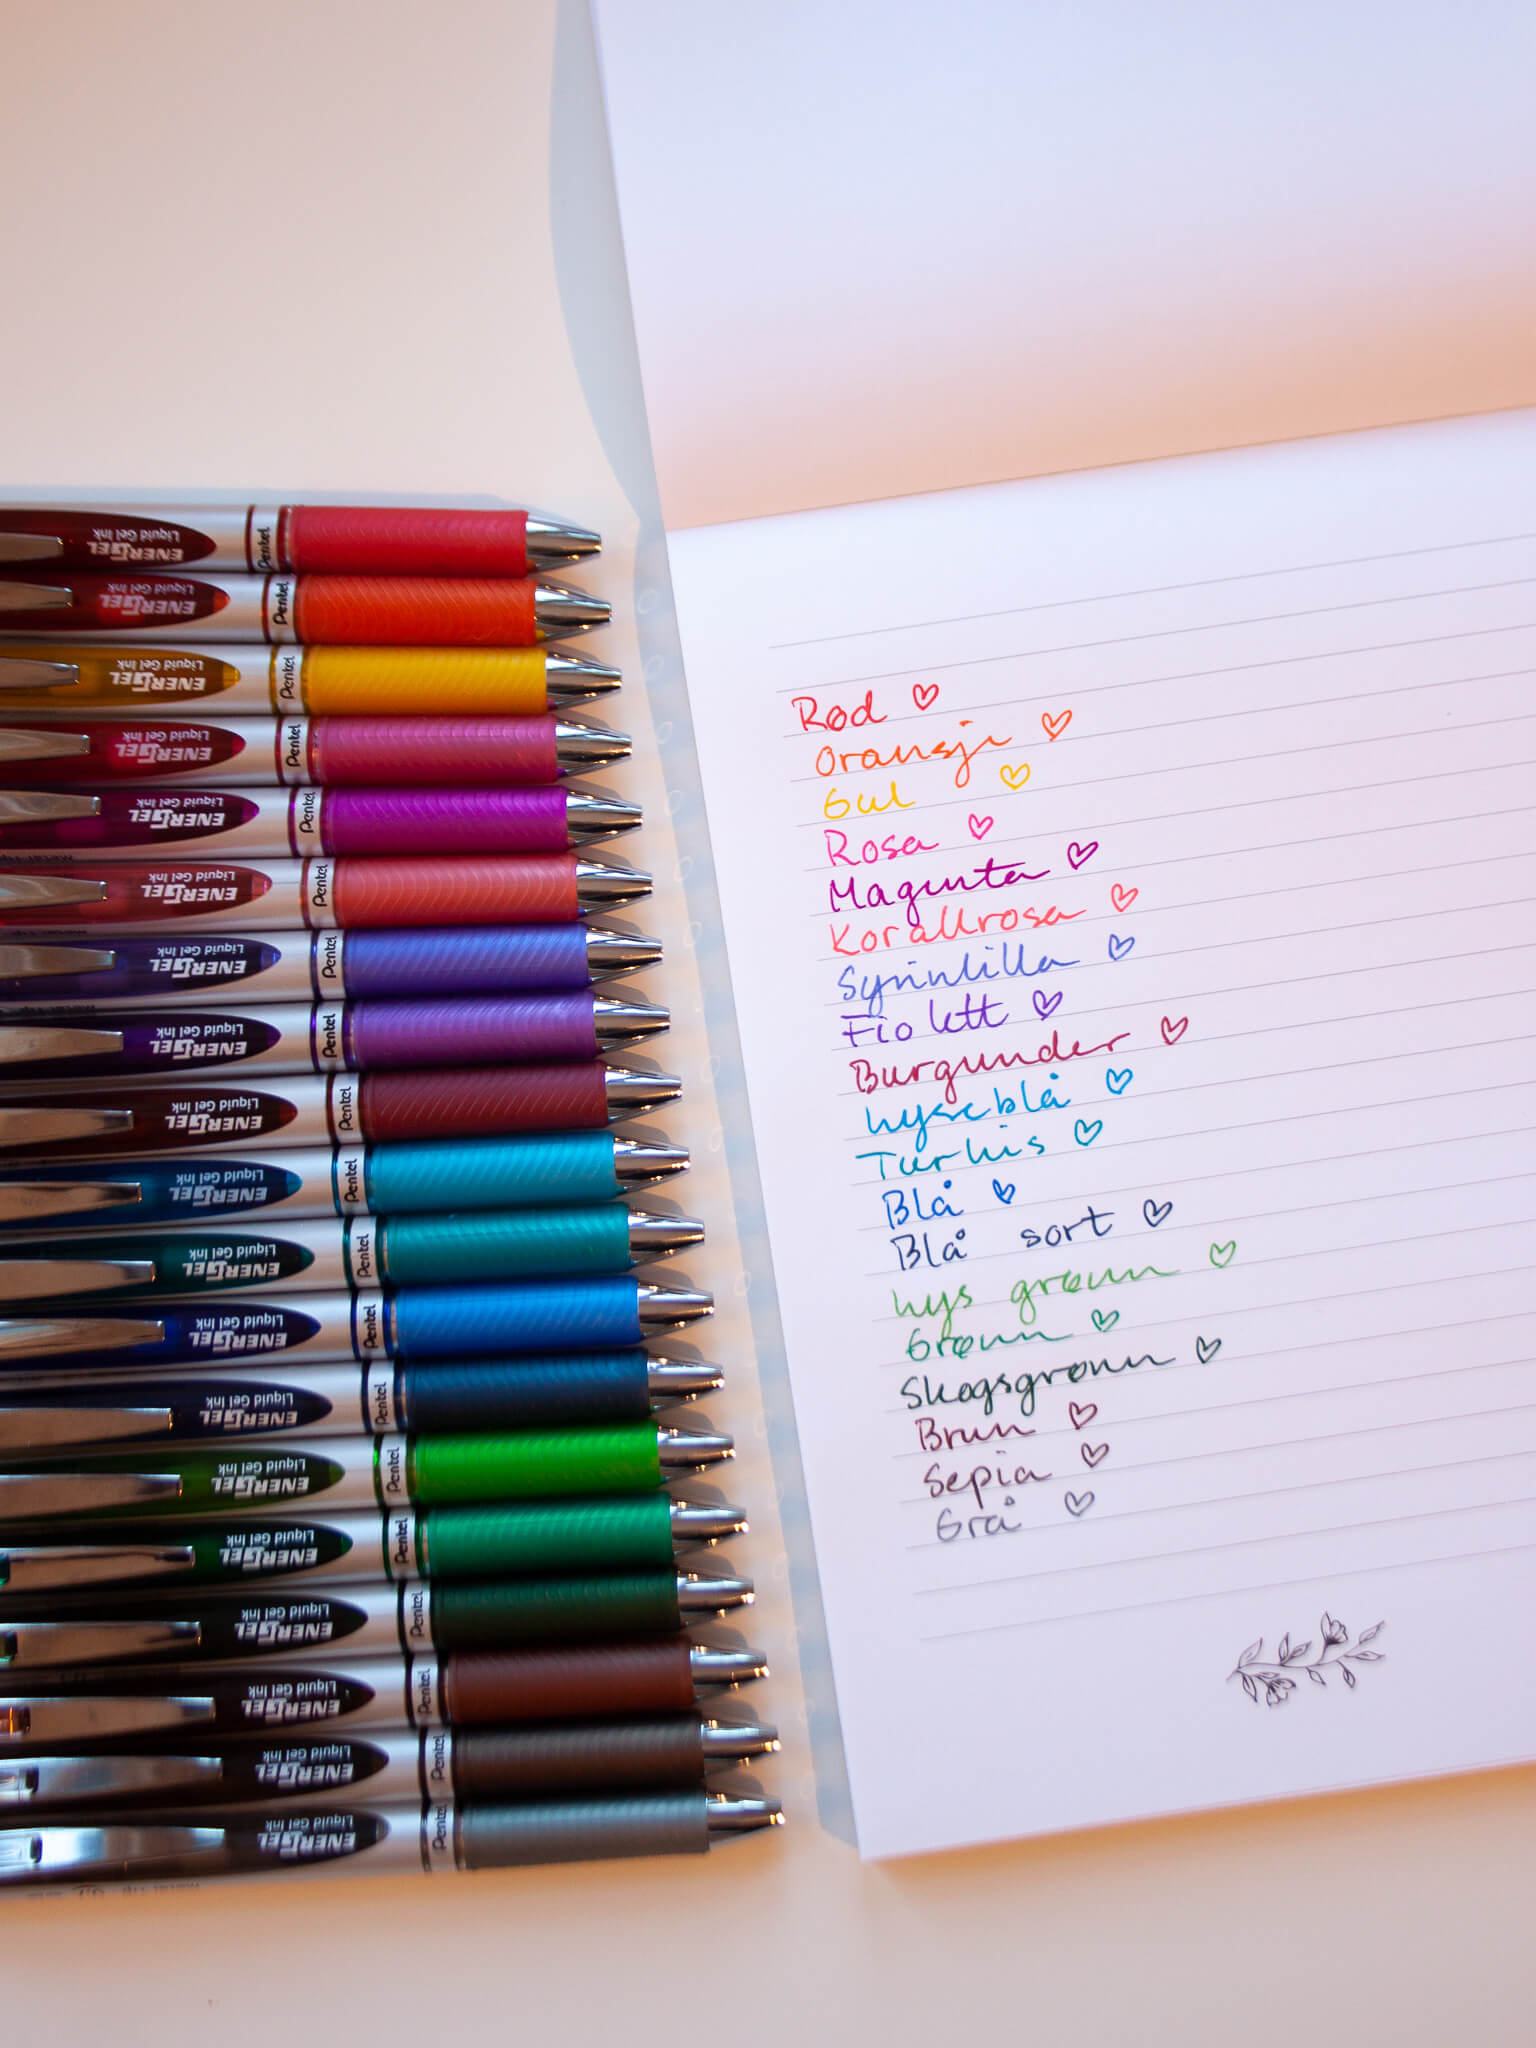 Rød
Oransje
Gul
Rosa
Magenta
Korallrosa
Syrinlilla
Fiolett
Burgunder
lyseblå
Turkis
Blå
Blå sort
lys grønn
Grønn
Skogsgrønn
Brun
Sepia
Grå
ENERGEL
Liquid Gel Ink
Pentel
ENERGEL
Liquid Gel Ink
Pentel
ENERGEL
Liquid Gel Ink
Pentel
ENERGEL
Liquid Gel Ink
Pentel
ENERGEL
Liquid Gel Ink
Pentel
ENERGEL
Liquid Gel Ink
Pentel
ENERGEL
Liquid Gel Ink
Pentel
ENERGEL
Liquid Gel Ink
Pentel
ENERGEL
Liquid Gel Ink
Pentel
ENERGEL
Liquid Gel Ink
Pentel
ENERGEL
Liquid Gel Ink
Pentel
ENERGEL
Liquid Gel Ink
Pentel
ENERGEL
Liquid Gel Ink
Pentel
ENERGEL
Liquid Gel Ink
Pentel
ENERGEL
Liquid Gel Ink
Pentel
ENERGEL
Liquid Gel Ink
Pentel
ENERGEL
Liquid Gel Ink
Pentel
ENERGEL
Liquid Gel Ink
Pentel
ENERGEL
Liquid Gel Ink
Pentel